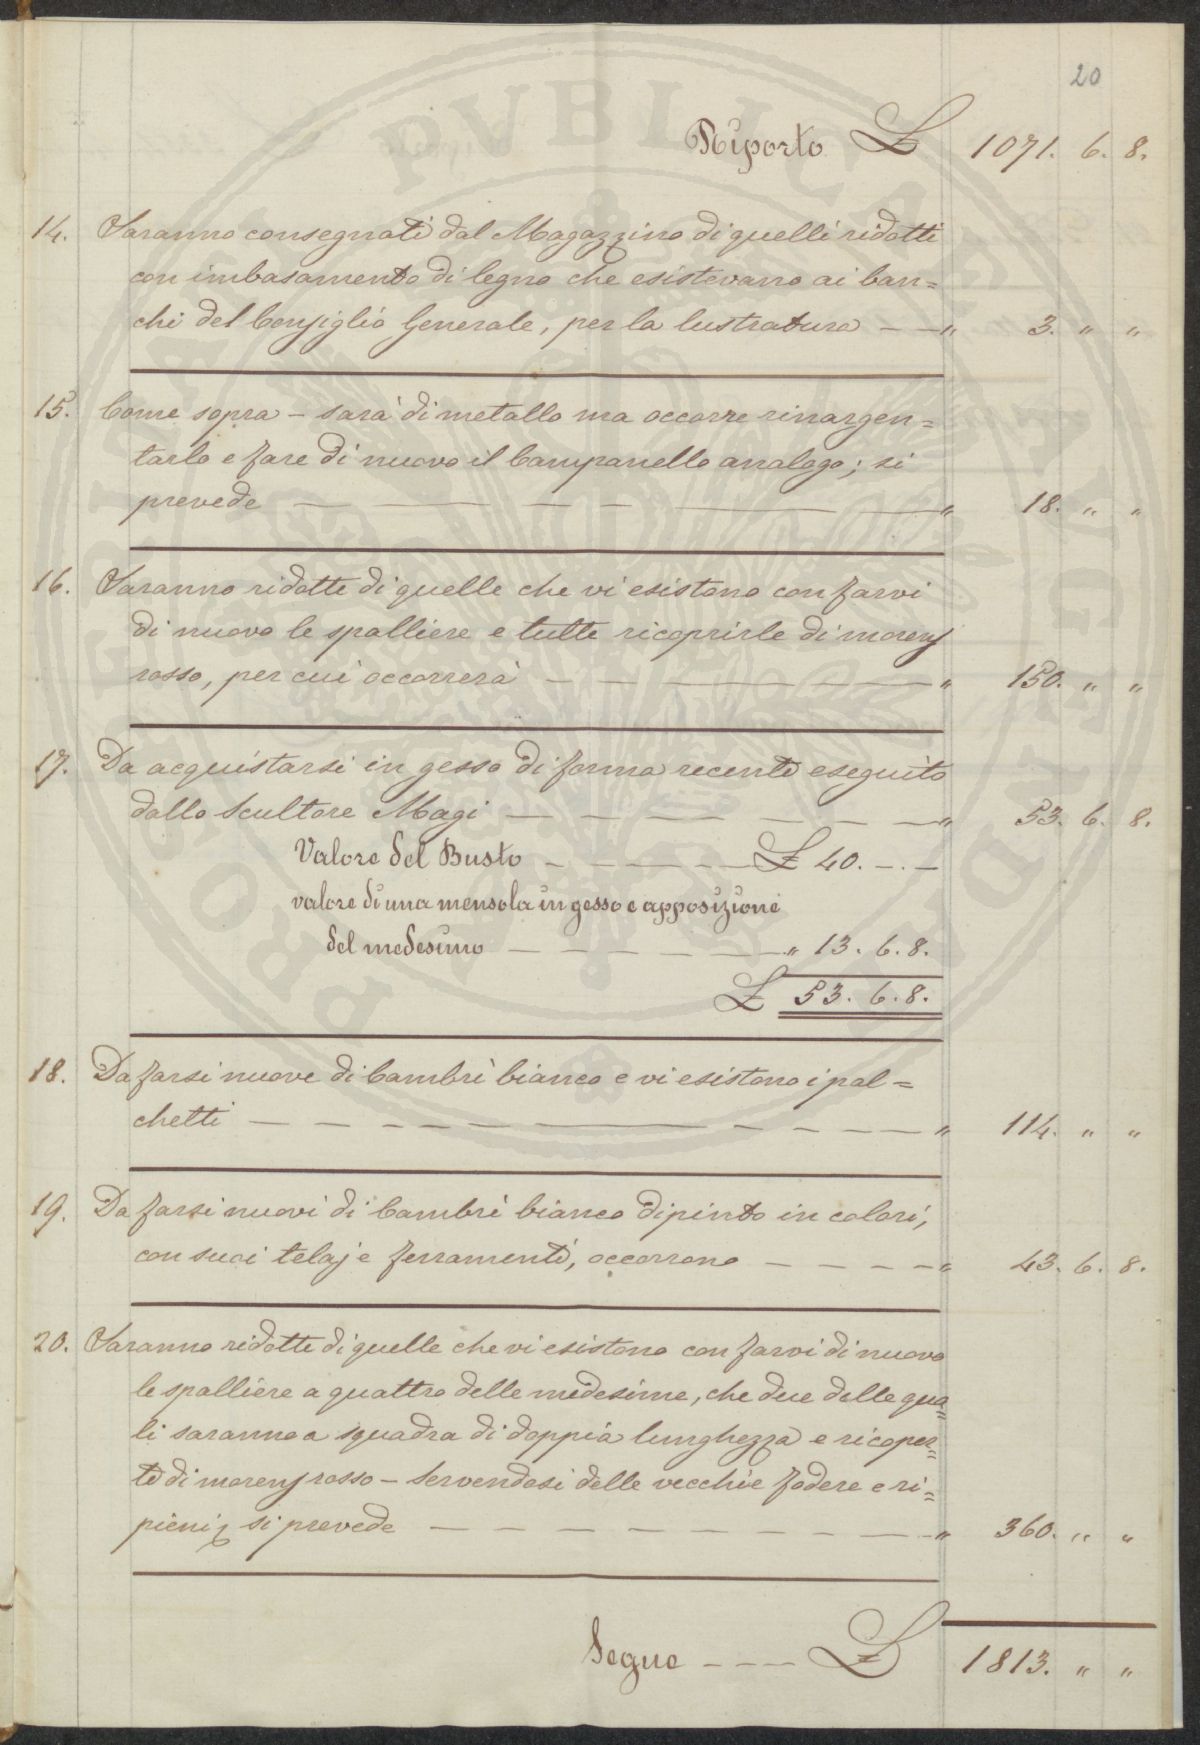 20
Riporto £ 1071. 6. 8.
14. Saranno consegnati dal Magazzino di quelli ridotti
con imbasamento di legno che esistevano ai ban=
chi del Consiglio Generale, per la lustratura — — " 3. " "
15. Come sopra – sarà di metallo ma occorre rinargen=
tarlo e fare di nuovo il Campanello analogo; si
prevede — — — — — — " 18. " "
16. Saranno ridotte di quelle che vi esistono con farvi
di nuovo le spalliere e tutte ricoprirle di morens
rosso, per cui occorrerà — — — — — — " 150. " "
17. Da acquistarsi in gesso di forma recente eseguito
dallo Scultore Magi — — — — — — " 53. 6. 8.
Valore del Busto — — — — — £ 40. —. —
valore di una mensola in gesso e apposizione
del medesimo — — — — — — " 13. 6. 8.
£ 53. 6. 8.
18. Da farsi nuove di Cambrì bianco e vi esistono i pal=
chetti — — — — — — — — — — " 114. " "
19. Da farsi nuovi di Cambrì bianco dipinto in colori,
con suoi telaj e ferramenti, occorrono — — — — — " 43. 6. 8.
20. Saranno ridotte di quelle che vi esistono con farvi di nuovo
le spalliere a quattro delle medesime, che due delle qua=
li saranno a squadra di doppia lunghezza e ricoper=
te di morens rosso – Servendosi delle vecchie fodere e ri=
pieni; si prevede — — — — — — — — — " 360. " "
Segue — — — £ 1813. " "
PROPRIETA PVBLICAE AVGENDAE